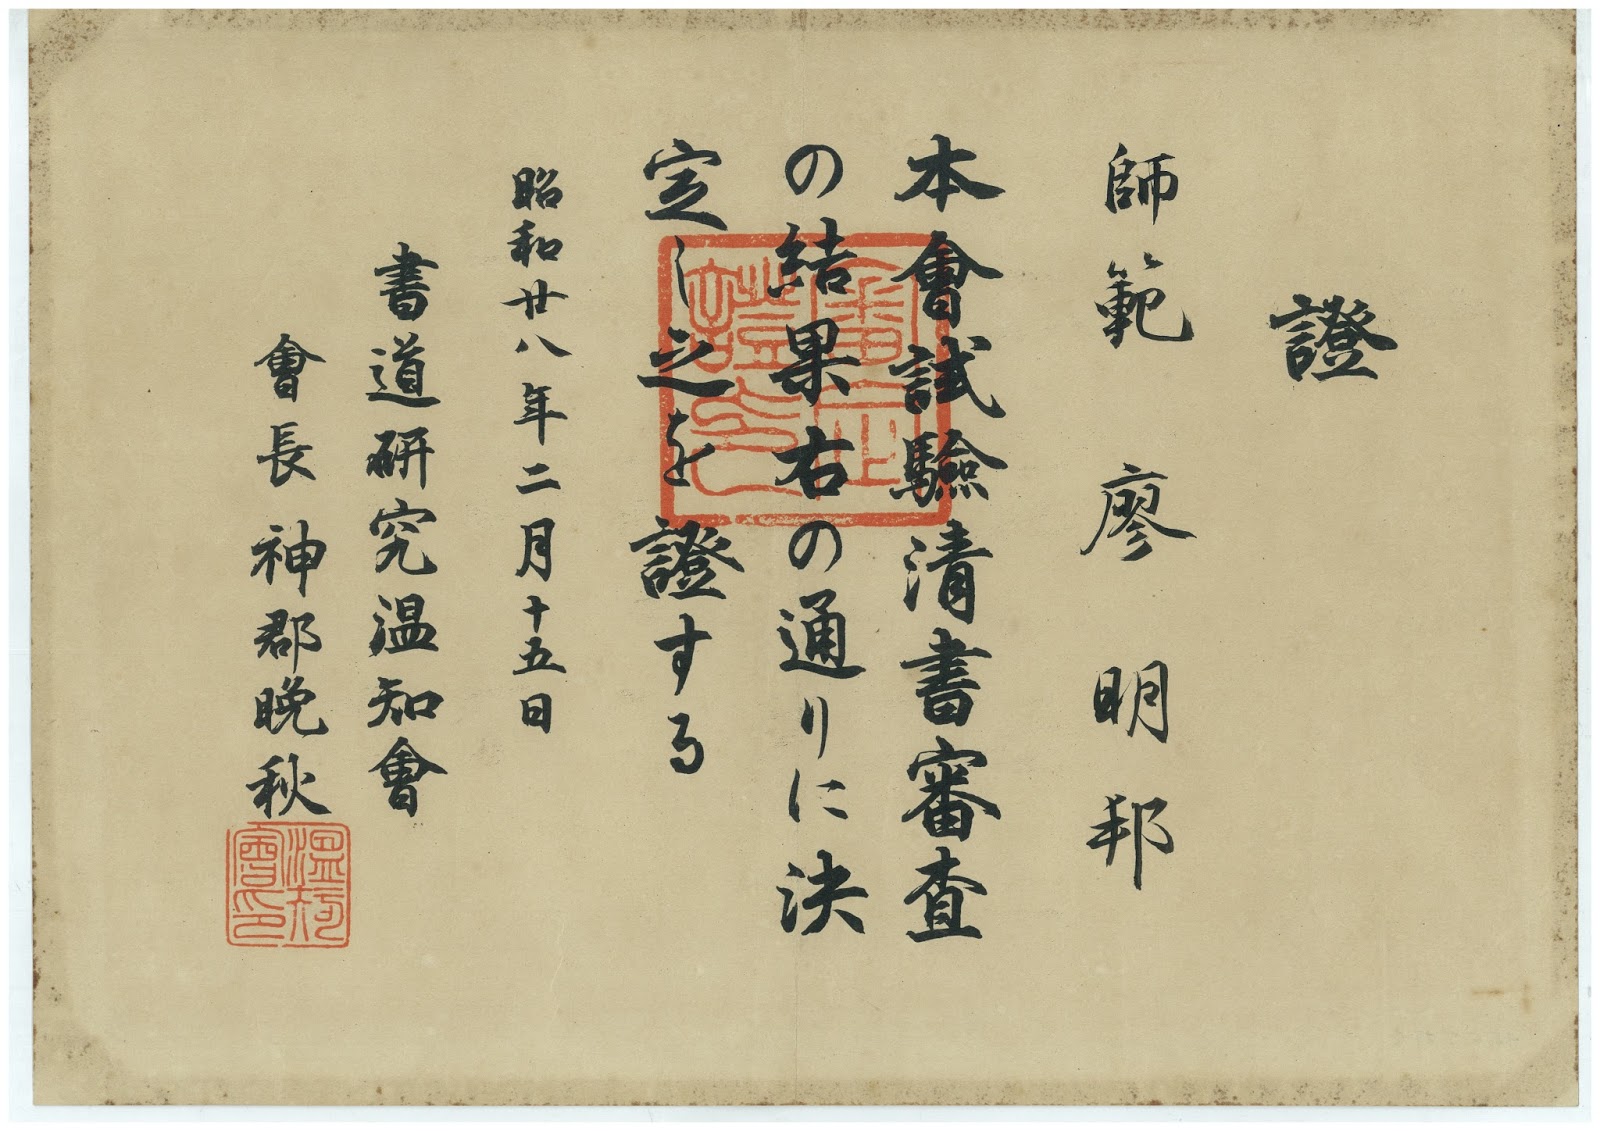 證
師範 廖明邦
本會試驗清書審査
の結果右の通りに決
定し之を證する
昭和廿八年二月十五日
書道研究温知會
會長 神郡晩秋
溫知會印